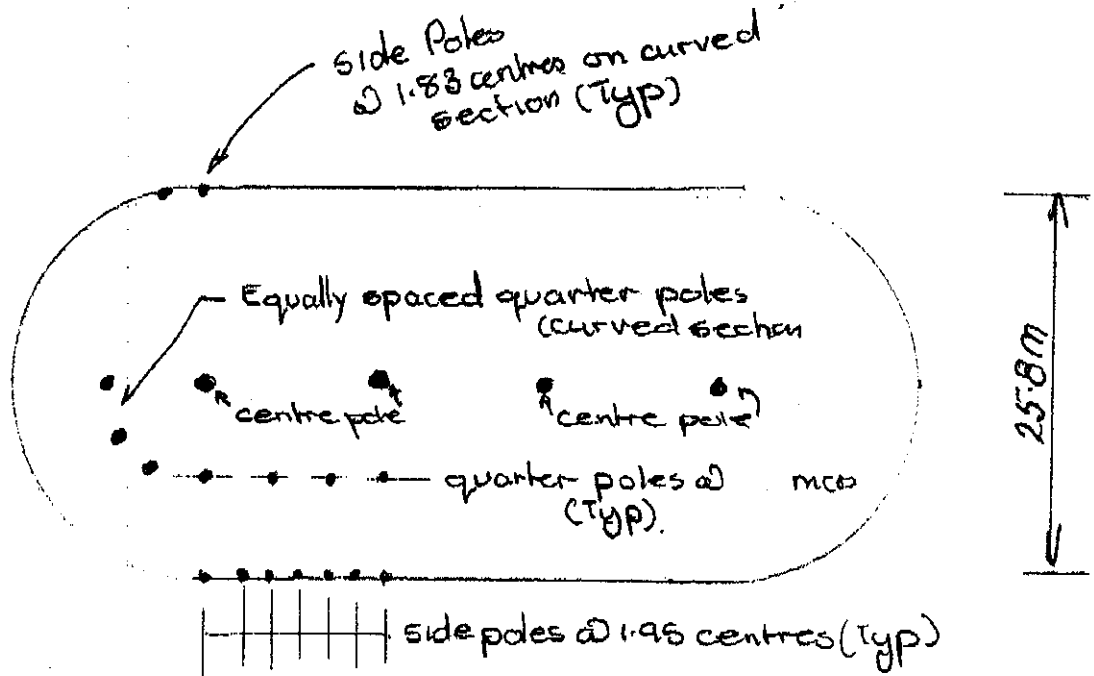 side Poles
@ 1.83 centres on curved
section (Typ)
Equally spaced quarter poles
(curved section
centre pole
centre pole
quarter poles @ mcs
(Typ).
25.8m
side poles @ 1.95 centres (Typ)